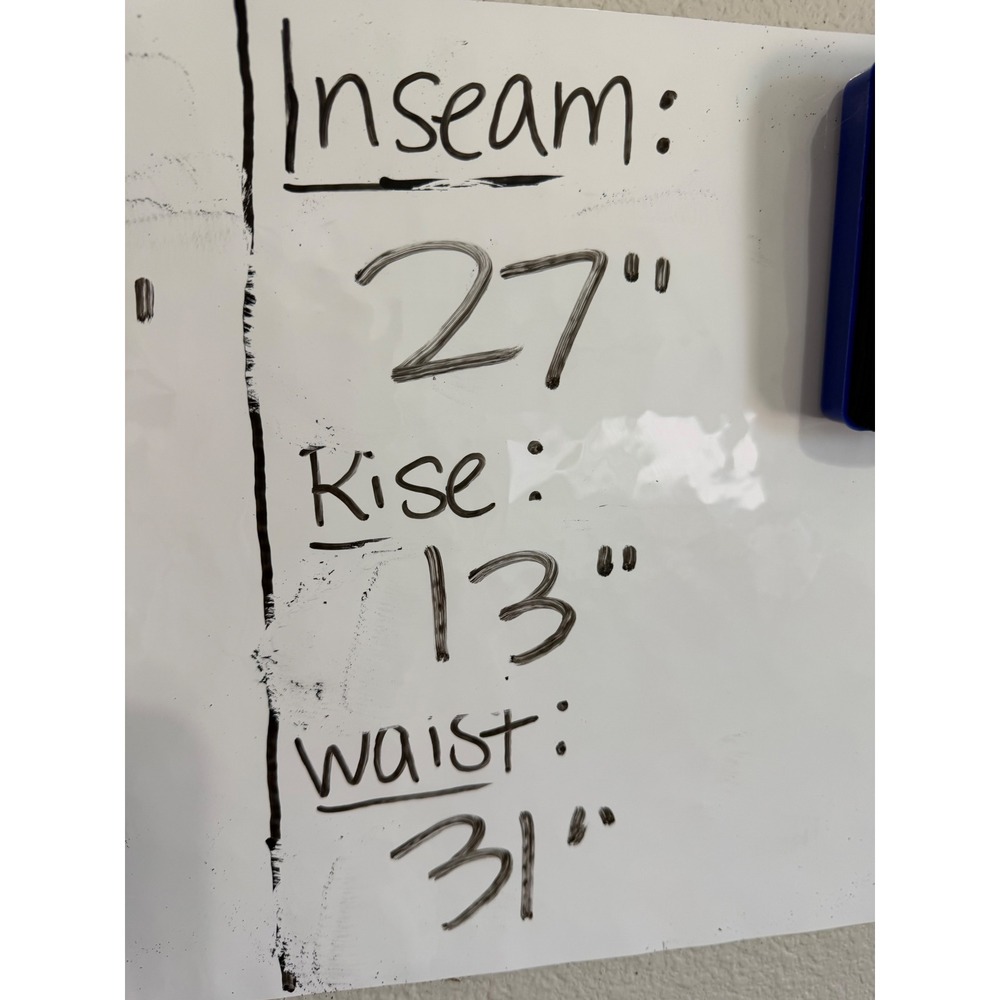 Inseam:
27"
Rise:
13"
waist:
31"